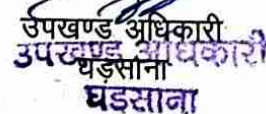 उपखण्ड अधिकारी
उपखण्ड अधिकारी
घड़साना
घड़साना